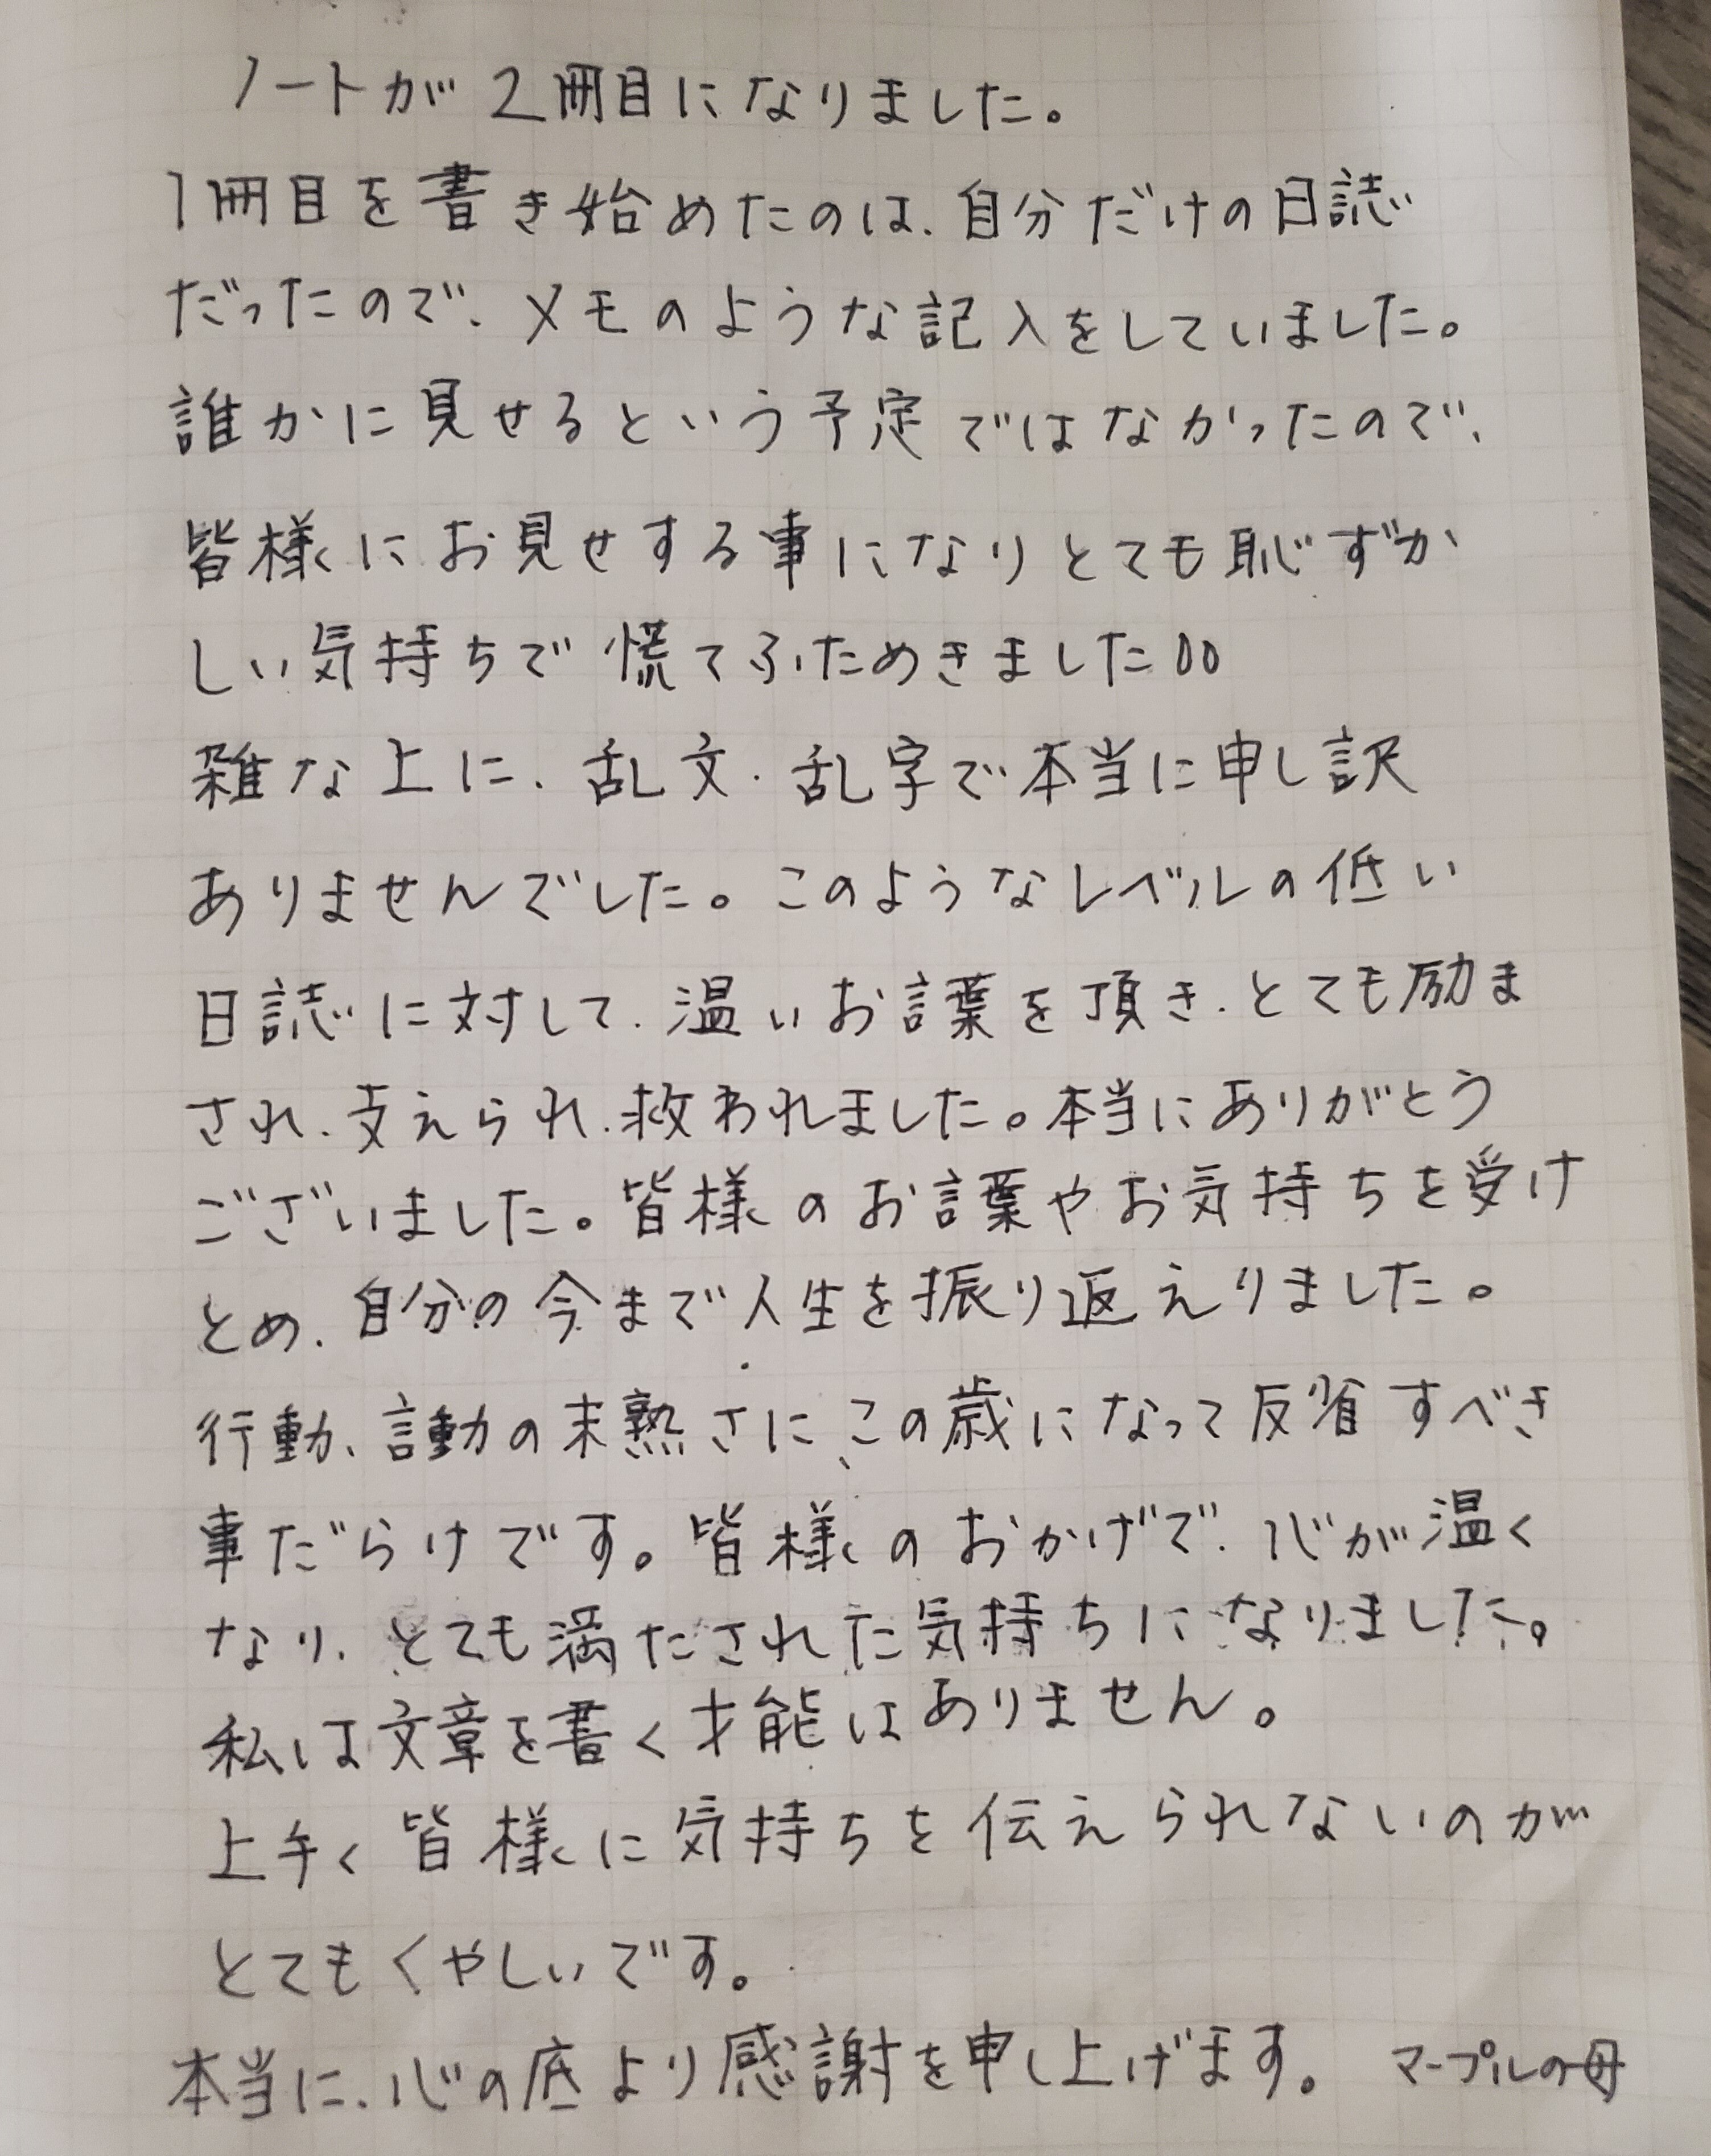 ノートが2冊目になりました。
1冊目を書き始めたのは、自分だけの日誌
だったので、メモのような記入をしていました。
誰かに見せるという予定ではなかったので、
皆様にお見せする事になりとても恥ずか
しい気持ちで慌てふためきました00
雑な上に、乱文・乱字で本当に申し訳
ありませんでした。このようなレベルの低い
日誌に対して、温いお言葉を頂き、とても励ま
され、支えられ、救われました。本当にありがとう
ございました。皆様のお言葉やお気持ちを受け
とめ、自分の今まで人生を振り返えりました。
行動、言動の未熟さに、この歳になって反省すべき
事だらけです。皆様のおかげで、心が温く
なり、とても満たされた気持ちになりました。
私は文章を書く才能はありません。
上手く皆様に気持ちを伝えられないのが
とてもくやしいです。
本当に、心の底より感謝を申し上げます。 マープルの母